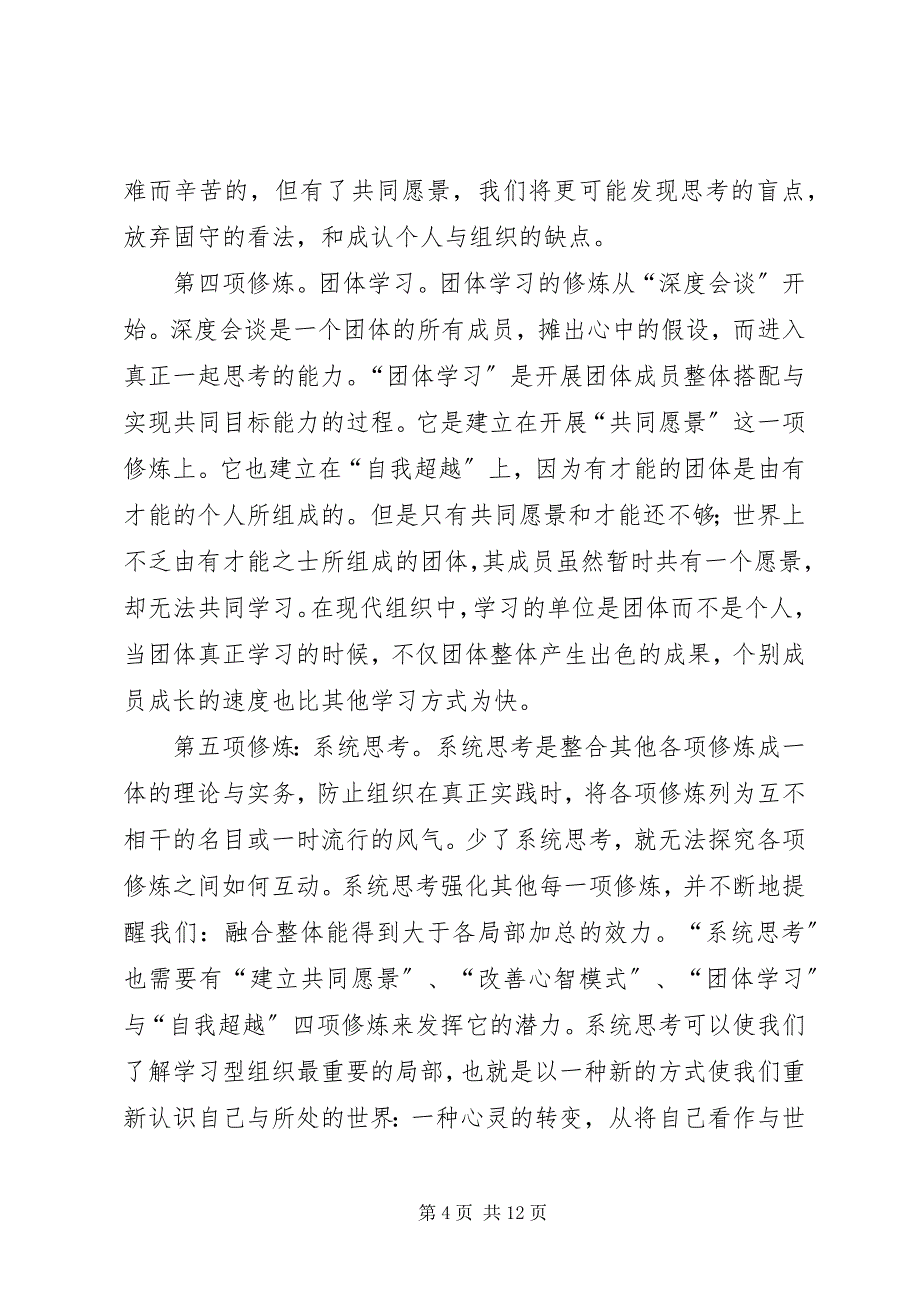 难而辛苦的，但有了共同愿景，我们将更可能发现思考的盲点，
放弃固守的看法，和成认个人与组织的缺点。
第四项修炼。团体学习。团体学习的修炼从“深度会谈〞开
始。深度会谈是一个团体的所有成员，摊出心中的假设，而进入
真正一起思考的能力。“团体学习〞是开展团体成员整体搭配与
实现共同目标能力的过程。它是建立在开展“共同愿景〞这一项
修炼上。它也建立在“自我超越〞上，因为有才能的团体是由有
才能的个人所组成的。但是只有共同愿景和才能还不够；世界上
不乏由有才能之士所组成的团体，其成员虽然暂时共有一个愿景，
却无法共同学习。在现代组织中，学习的单位是团体而不是个人，
当团体真正学习的时候，不仅团体整体产生出色的成果，个别成
员成长的速度也比其他学习方式为快。
第五项修炼：系统思考。系统思考是整合其他各项修炼成一
体的理论与实务，防止组织在真正实践时，将各项修炼列为互不
相干的名目或一时流行的风气。少了系统思考，就无法探究各项
修炼之间如何互动。系统思考强化其他每一项修炼，并不断地提
醒我们：融合整体能得到大于各局部加总的效力。“系统思考〞
也需要有“建立共同愿景〞、“改善心智模式〞、“团体学习〞
与“自我超越〞四项修炼来发挥它的潜力。系统思考可以使我们
了解学习型组织最重要的局部，也就是以一种新的方式使我们重
新认识自己与所处的世界：一种心灵的转变，从将自己看作与世
第 4 页 共 12 页